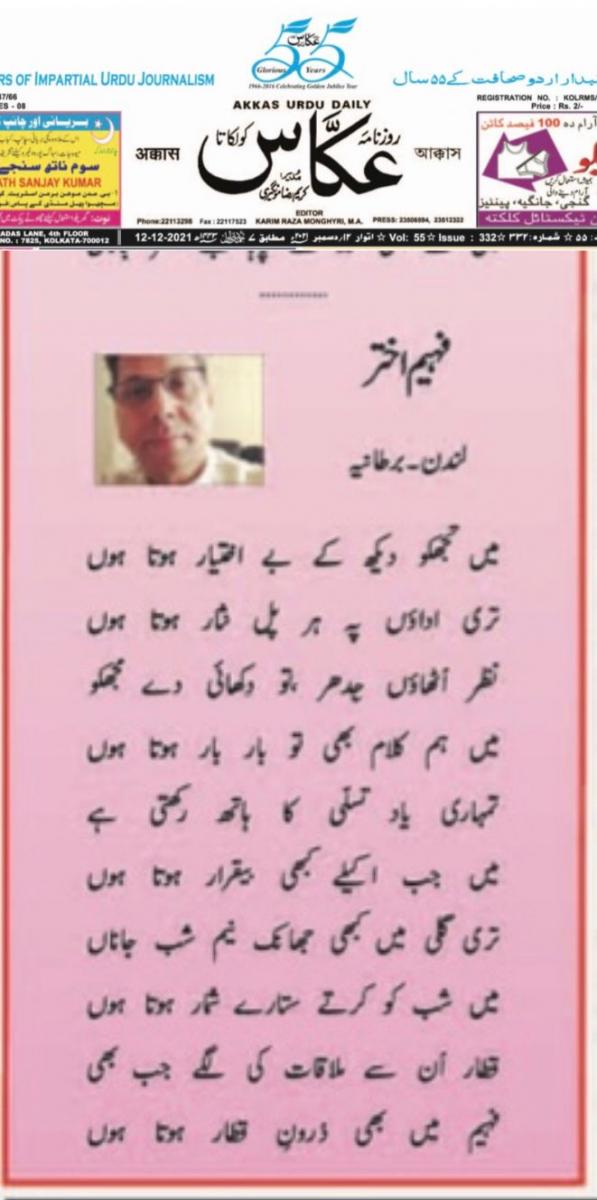 RS OF IMPARTIAL URDU JOURNALISM
عکاس
55
Glorious Years
1966-2016 Celebrating Golden Jubilee Year
بیدار اردو صحافت کے ۵۵ سال
57/66
ES - 08
REGISTRATION NO. : KOLRMS/
Price : Rs. 2/-
AKKAS URDU DAILY
روزنامہ
عکّاس
کولکاتا
अक्कास
আক্কাস
مدیر:
کریم رضا مونگیری
EDITOR
KARIM RAZA MONGHYRI, M.A.
Phone:22113298 Fax : 22117523
PRESS: 23506894, 23512323
بریانی اور چانپ
سوم ناتھ سنجے
ATH SANJAY KUMAR
آرام دہ 100 فیصد کاٹن
گنجی، جانگیہ، پینٹیز
ٹیکسٹائل کلکتہ
ADAS LANE, 4th FLOOR
NO. : 7825, KOLKATA-700012
12-12-2021
اتوار ۱۲ دسمبر ۲۰۲۱ء مطابق ۷
Vol: 55 ☆ Issue : 332 ☆ شمارہ: ۳۳۲ ☆ ۵۵
فہیم اختر
لندن۔برطانیہ
میں تجھکو دیکھ کے بے اختیار ہوتا ہوں
تری اداؤں پہ ہر پل نثار ہوتا ہوں
نظر اُٹھاؤں جدھر ،تو دکھائی دے مجھکو
میں ہم کلام بھی تو بار بار ہوتا ہوں
تمہاری یاد تسلّی کا ہاتھ رکھتی ہے
میں جب اکیلے کبھی بیقرار ہوتا ہوں
تری گلی میں کبھی جھانک نیم شب جاناں
میں شب کو کرتے ستارے شمار ہوتا ہوں
قطار اُن سے ملاقات کی لگے جب بھی
فہیم میں بھی دُرونِ قطار ہوتا ہوں